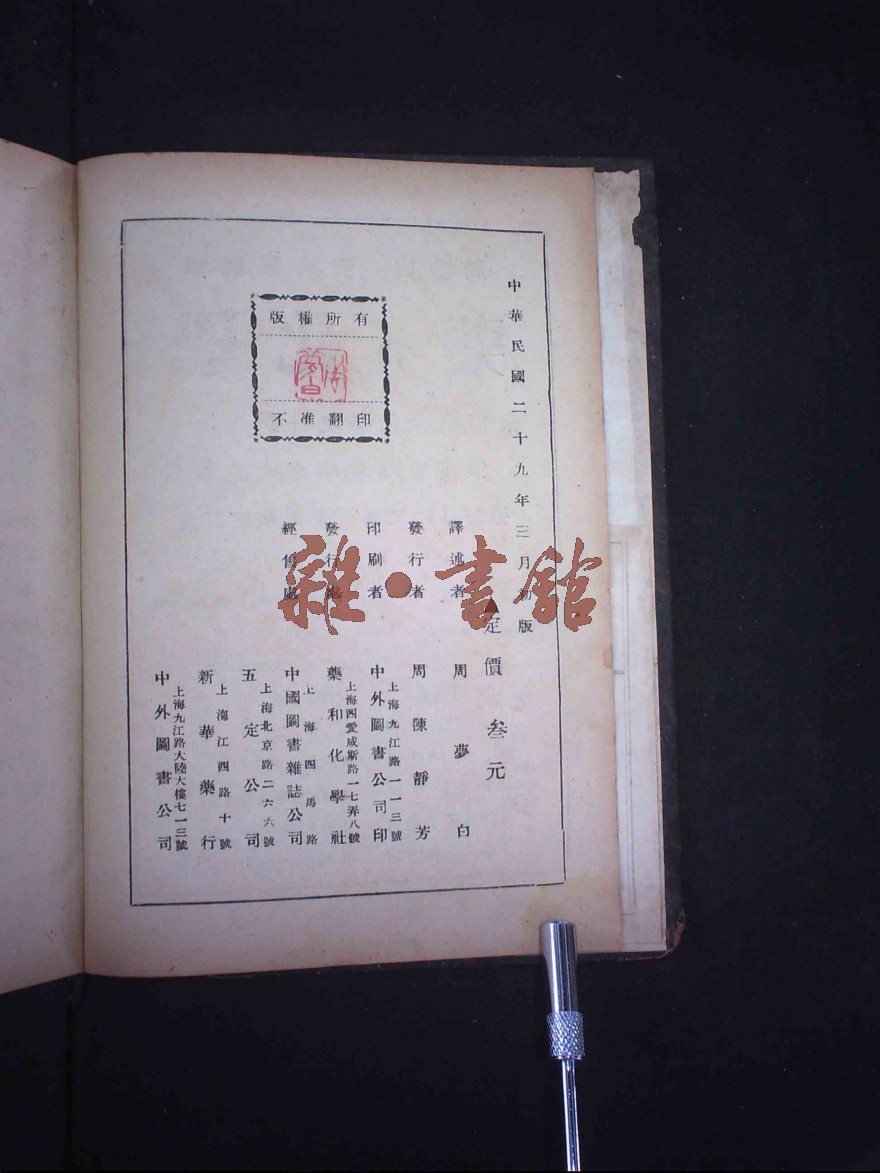 中華民國二十九年三月初版
定價 叁元
譯述者 周夢白
發行者 周陳靜芳
印刷者 中外圖書公司印
上海九江路一一三號
發行處 藥和化學社
上海西愛咸斯路一七弄八號
經售處 中國圖書雜誌公司
上海四馬路
五定公司
上海北京路二六六號
新華藥行
上海江西路十號
中外圖書公司
上海九江路大陸大樓七一三號
版權所有
不准翻印
雜·書館